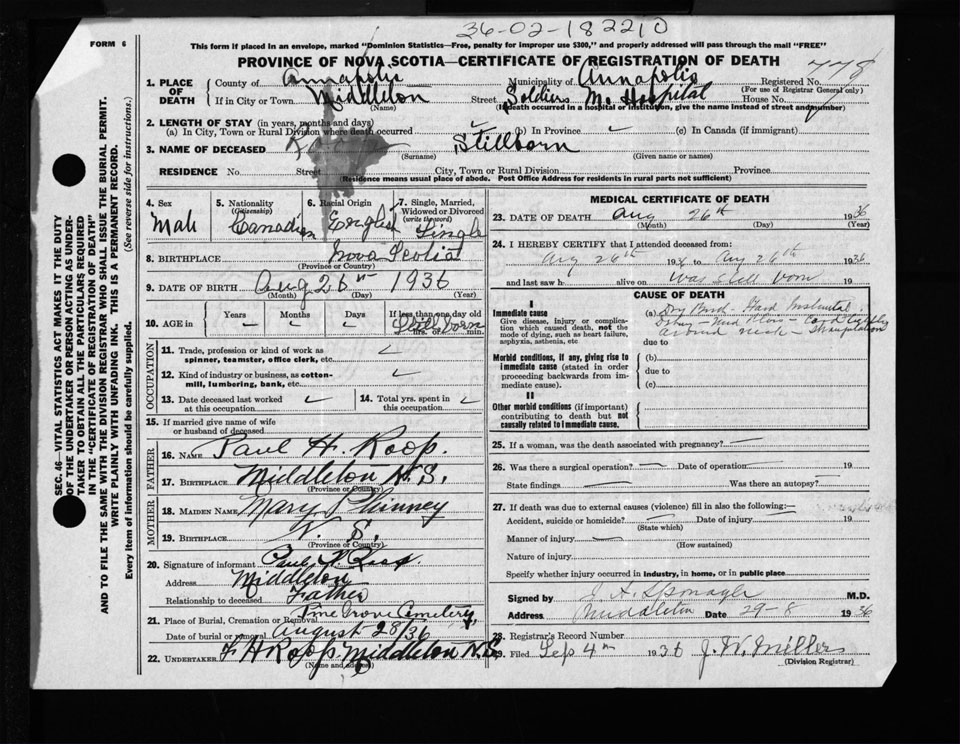 36-02-182210
FORM 6
This form if placed in an envelope, marked "Dominion Statistics—Free, penalty for improper use $300," and properly addressed will pass through the mail "FREE"
PROVINCE OF NOVA SCOTIA—CERTIFICATE OF REGISTRATION OF DEATH
778
1. PLACE OF DEATH County of Annapolis Municipality of Annapolis Registered No.
(For use of Registrar General only)
If in City or Town Middleton Street Soldiers M. Hospital House No.
(Name) (If death occurred in a hospital or institution, give the name instead of street and number)
2. LENGTH OF STAY (in years, months and days)
(a) In City, Town or Rural Division where death occurred (b) In Province (c) In Canada (if immigrant)
3. NAME OF DECEASED Roop Stillborn
(Surname) (Given name or names)
RESIDENCE No. Street City, Town or Rural Division Province
(Residence means usual place of abode. Post Office Address for residents in rural parts not sufficient)
SEC. 46—VITAL STATISTICS ACT MAKES IT THE DUTY
OF THE UNDERTAKER OR PERSON ACTING AS UNDER-
TAKER TO OBTAIN ALL THE PARTICULARS REQUIRED
IN THE "CERTIFICATE OF REGISTRATION OF DEATH"
AND TO FILE THE SAME WITH THE DIVISION REGISTRAR WHO SHALL ISSUE THE BURIAL PERMIT.
WRITE PLAINLY WITH UNFADING INK. THIS IS A PERMANENT RECORD.
Every item of information should be carefully supplied. (See reverse side for instructions.)
4. Sex
Male
5. Nationality
(Citizenship)
Canadian
6. Racial Origin
English
7. Single, Married,
Widowed or Divorced
(write the word)
Single
8. BIRTHPLACE Nova Scotia
(Province or Country)
9. DATE OF BIRTH Aug 26th 1936
(Month) (Day) (Year)
10. AGE in Years Months Days If less than one day old
Still Born
hrs. or min.
OCCUPATION
11. Trade, profession or kind of work as
spinner, teamster, office clerk, etc.
12. Kind of industry or business, as cotton-
mill, lumbering, bank, etc.
13. Date deceased last worked
at this occupation
14. Total yrs. spent in
this occupation
15. If married give name of wife
or husband of deceased
FATHER
16. NAME Paul H. Roop.
17. BIRTHPLACE Middleton N.S.
(Province or Country)
MOTHER
18. MAIDEN NAME Mary Phinney
19. BIRTHPLACE N. S.
(Province or Country)
20. Signature of informant Paul H. Roop.
Address Middleton
Relationship to deceased Father
21. Place of Burial, Cremation or Removal Pine Grove Cemetery
Date of burial or removal August 28/36
22. UNDERTAKER F H Roop Middleton N.S.
(Name and address)
MEDICAL CERTIFICATE OF DEATH
23. DATE OF DEATH Aug 26th 1936
(Month) (Day) (Year)
24. I HEREBY CERTIFY that I attended deceased from:
Aug 26th 1936 to Aug 26th 1936
and last saw h alive on Was still born 19
CAUSE OF DEATH
I
Immediate cause
Give disease, injury or complica-
tion which caused death, not the
mode of dying, such as heart failure,
asphyxia, asthenia, etc
(a) Dry Birth - Hard Instrumental
around neck - Strangulation
due to
Morbid conditions, if any, giving rise to
immediate cause (stated in order
proceeding backwards from im-
mediate cause).
(b)
due to
(c)
II
Other morbid conditions (if important)
contributing to death but not
causally related to immediate cause.
25. If a woman, was the death associated with pregnancy?
26. Was there a surgical operation? Date of operation 19
State findings Was there an autopsy?
27. If death was due to external causes (violence) fill in also the following:—
Accident, suicide or homicide? Date of injury 19
(State which)
Manner of injury
(How sustained)
Nature of injury
Specify whether injury occurred in industry, in home, or in public place
Signed by J. A. Sponagle M.D.
Address Middleton Date 29-8 1936
28. Registrar's Record Number
29. Filed Sep 4th 1936 J. W. Miller
(Division Registrar)